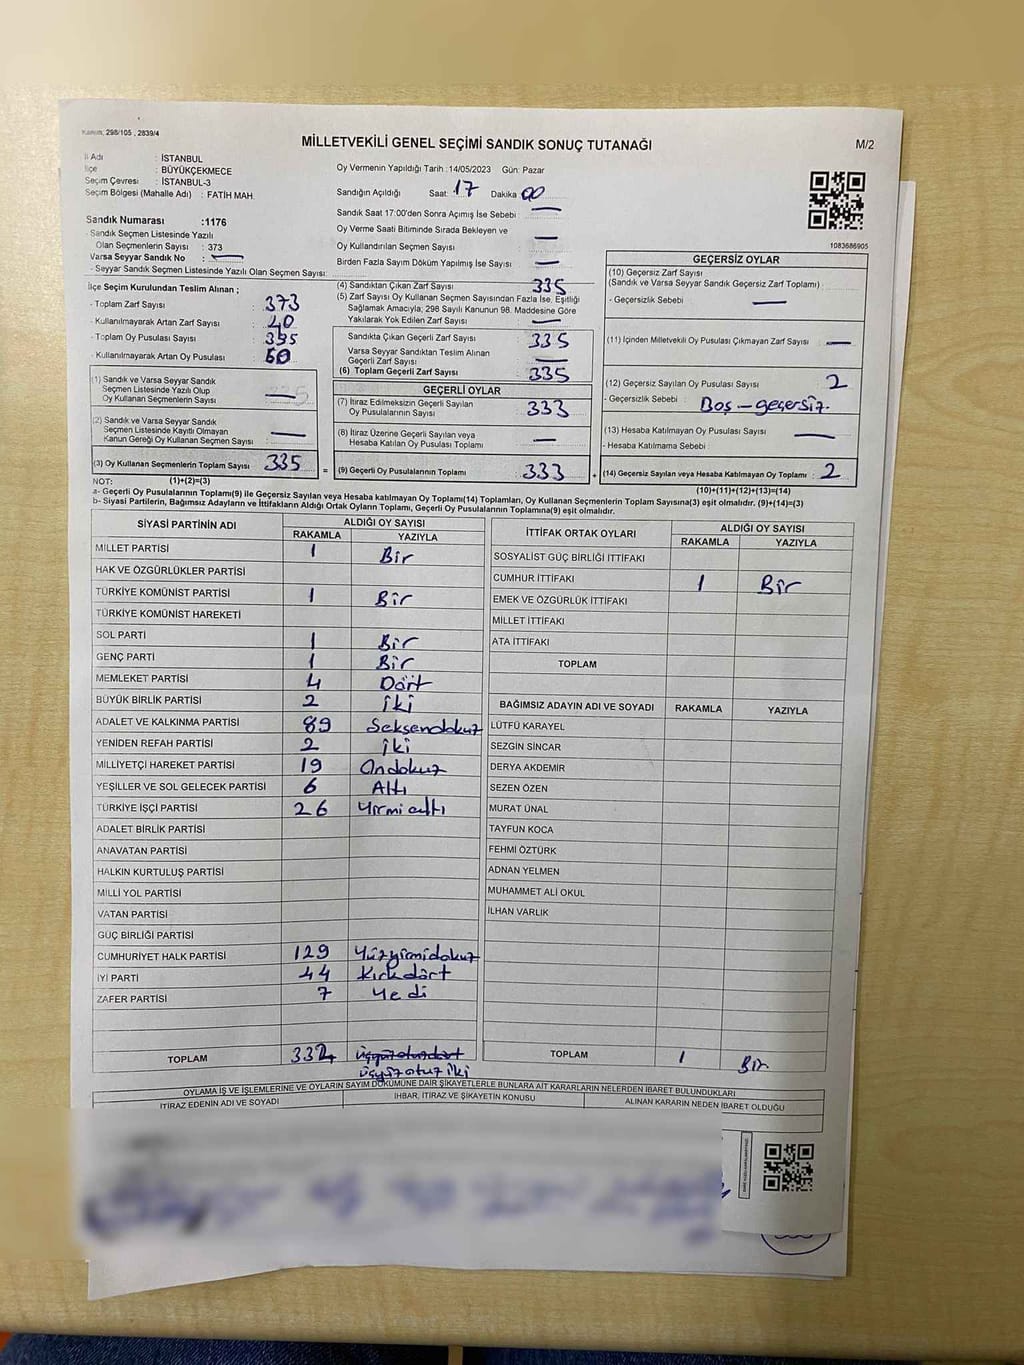 Kanun; 298/105 , 2839/4
MİLLETVEKİLİ GENEL SEÇİMİ SANDIK SONUÇ TUTANAĞI
M/2
İl Adı : İSTANBUL
İlçe : BÜYÜKÇEKMECE
Seçim Çevresi : İSTANBUL-3
Seçim Bölgesi (Mahalle Adı) : FATİH MAH.
Sandık Numarası :1176
- Sandık Seçmen Listesinde Yazılı
Olan Seçmenlerin Sayısı : 373
Varsa Seyyar Sandık No : —
- Seyyar Sandık Seçmen Listesinde Yazılı Olan Seçmen Sayısı:
Oy Vermenin Yapıldığı Tarih :14/05/2023 Gün: Pazar
Sandığın Açıldığı Saat: 17 Dakika 00
Sandık Saat 17:00'den Sonra Açımış İse Sebebi —
Oy Verme Saati Bitiminde Sırada Bekleyen ve
Oy Kullandırılan Seçmen Sayısı : —
Birden Fazla Sayım Döküm Yapılmış İse Sayısı : —
1083686905
İlçe Seçim Kurulundan Teslim Alınan ;
- Toplam Zarf Sayısı : 373
- Kullanılmayarak Artan Zarf Sayısı : 40
- Toplam Oy Pusulası Sayısı :
- Kullanılmayarak Artan Oy Pusulası :
(1) Sandık ve Varsa Seyyar Sandık
Seçmen Listesinde Yazılı Olup
Oy Kullanan Seçmenlerin Sayısı : —
(2) Sandık ve Varsa Seyyar Sandık
Seçmen Listesinde Kayıtlı Olmayan
Kanun Gereği Oy Kullanan Seçmen Sayısı : —
(3) Oy Kullanan Seçmenlerin Toplam Sayısı 335 =
(4) Sandıktan Çıkan Zarf Sayısı : 335
(5) Zarf Sayısı Oy Kullanan Seçmen Sayısından Fazla İse, Eşitliği
Sağlamak Amacıyla; 298 Sayılı Kanunun 98. Maddesine Göre
Yakılarak Yok Edilen Zarf Sayısı : —
Sandıkta Çıkan Geçerli Zarf Sayısı : 335
Varsa Seyyar Sandıktan Teslim Alınan
Geçerli Zarf Sayısı : —
(6) Toplam Geçerli Zarf Sayısı : 335
GEÇERLİ OYLAR
(7) İtiraz Edilmeksizin Geçerli Sayılan
Oy Pusulalarının Sayısı : 333
(8) İtiraz Üzerine Geçerli Sayılan veya
Hesaba Katılan Oy Pusulası Toplamı : —
(9) Geçerli Oy Pusulalarının Toplamı : 333 +
GEÇERSİZ OYLAR
(10) Geçersiz Zarf Sayısı
(Sandık ve Varsa Seyyar Sandık Geçersiz Zarf Toplamı) :
- Geçersizlik Sebebi : —
(11) İçinden Milletvekili Oy Pusulası Çıkmayan Zarf Sayısı : —
(12) Geçersiz Sayılan Oy Pusulası Sayısı : 2
- Geçersizlik Sebebi : Boş - geçersiz.
(13) Hesaba Katılmayan Oy Pusulası Sayısı : —
- Hesaba Katılmama Sebebi :
(14) Geçersiz Sayılan veya Hesaba Katılmayan Oy Toplamı : 2
NOT: (1)+(2)=(3)
(10)+(11)+(12)+(13)=(14)
a- Geçerli Oy Pusulalarının Toplamı(9) ile Geçersiz Sayılan veya Hesaba katılmayan Oy Toplamı(14) Toplamları, Oy Kullanan Seçmenlerin Toplam Sayısına(3) eşit olmalıdır. (9)+(14)=(3)
b- Siyasi Partilerin, Bağımsız Adayların ve İttifakların Aldığı Ortak Oyların Toplamı, Geçerli Oy Pusulalarının Toplamına(9) eşit olmalıdır.
SİYASİ PARTİNİN ADI ALDIĞI OY SAYISI
RAKAMLA YAZIYLA
MİLLET PARTİSİ 1 Bir
HAK VE ÖZGÜRLÜKLER PARTİSİ
TÜRKİYE KOMÜNİST PARTİSİ 1 Bir
TÜRKİYE KOMÜNİST HAREKETİ
SOL PARTİ 1 Bir
GENÇ PARTİ 1 Bir
MEMLEKET PARTİSİ 4 Dört
BÜYÜK BİRLİK PARTİSİ 2 iki
ADALET VE KALKINMA PARTİSİ 89 Seksendokuz
YENİDEN REFAH PARTİSİ 2 iki
MİLLİYETÇİ HAREKET PARTİSİ 19 Ondokuz
YEŞİLLER VE SOL GELECEK PARTİSİ 6 Altı
TÜRKİYE İŞÇİ PARTİSİ 26 Yirmi altı
ADALET BİRLİK PARTİSİ
ANAVATAN PARTİSİ
HALKIN KURTULUŞ PARTİSİ
MİLLİ YOL PARTİSİ
VATAN PARTİSİ
GÜÇ BİRLİĞİ PARTİSİ
CUMHURİYET HALK PARTİSİ 129 Yüzyirmidokuz
İYİ PARTİ 44 Kırkdört
ZAFER PARTİSİ 7 Yedi
TOPLAM 332 üçyüzotuzdört
üçyüzotuz iki
İTTİFAK ORTAK OYLARI ALDIĞI OY SAYISI
RAKAMLA YAZIYLA
SOSYALİST GÜÇ BİRLİĞİ İTTİFAKI
CUMHUR İTTİFAKI 1 Bir
EMEK VE ÖZGÜRLÜK İTTİFAKI
MİLLET İTTİFAKI
ATA İTTİFAKI
TOPLAM
BAĞIMSIZ ADAYIN ADI VE SOYADI RAKAMLA YAZIYLA
LÜTFÜ KARAYEL
SEZGİN SİNCAR
DERYA AKDEMİR
SEZEN ÖZEN
MURAT ÜNAL
TAYFUN KOCA
FEHMİ ÖZTÜRK
ADNAN YELMEN
MUHAMMET ALİ OKUL
İLHAN VARLIK
TOPLAM 1 Bir
OYLAMA İŞ VE İŞLEMLERİNE VE OYLARIN SAYIM DÖKÜMÜNE DAİR ŞİKAYETLERLE BUNLARA AİT KARARLARIN NELERDEN İBARET BULUNDUKLARI
İTİRAZ EDENİN ADI VE SOYADI İHBAR, İTİRAZ VE ŞİKAYETİN KONUSU ALINAN KARARIN NEDEN İBARET OLDUĞU